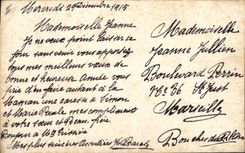 Mercredi 29 Décembre 1915
Mademoiselle Jeanne
Je ne veux point laisser ce
jour sans venir vous apporter
mes meilleurs vœux de
bonne et heureuse Année vous
prie d'en faire autant à la
Maman une caresse à Simon
et Marie Paule mes compliments
à votre sœur et
Bonjour à
Mes plus sincères Amitiés
Mademoiselle
Jeanne Jullien
Boulevard Perrin
No 36 St Just
Marseille
Bouches du Rhône